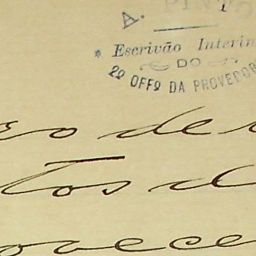 A. PINTO
* Escrivão Interin
DO
2º OFFº DA PROVEDOR
so de
tos d
ovece